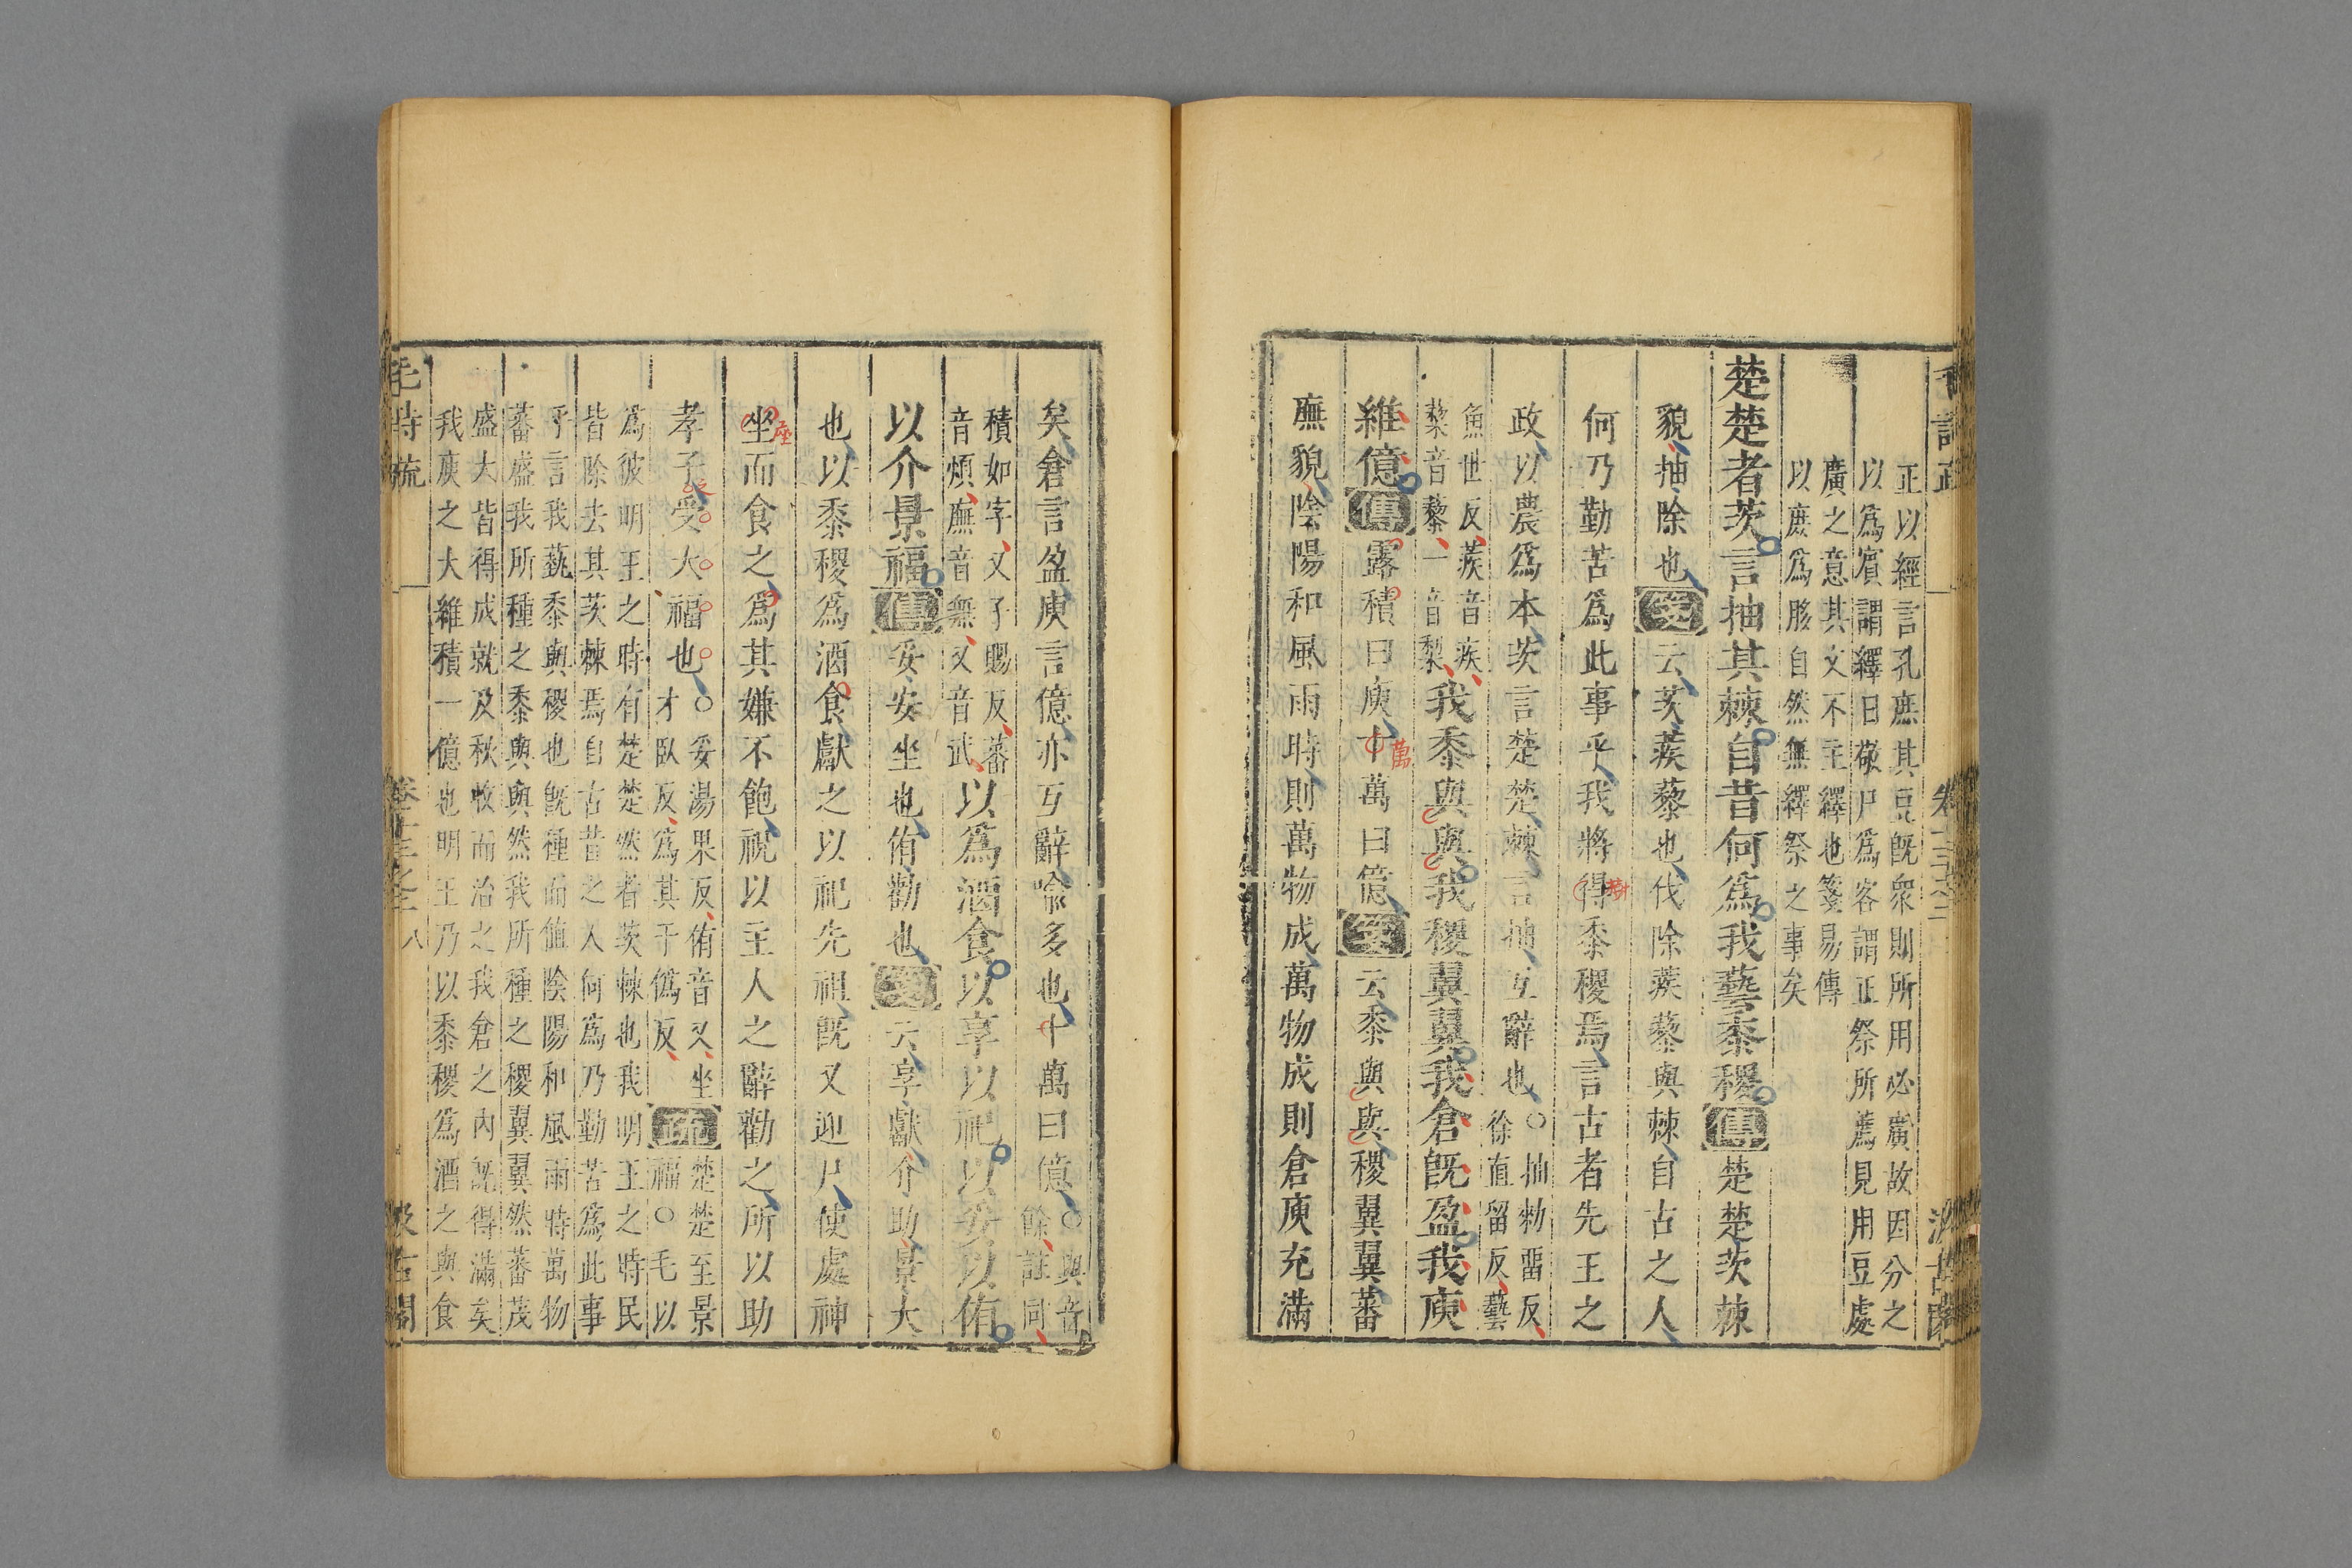 正以經言孔庶其豆旣衆則所用必廣故因分之
以爲賓謂繹日敬尸爲客謂正祭所薦見用豆處
廣之意其文不主繹也箋易傳
以庶爲胗自然無繹祭之事矣
楚楚者茨言抽其棘自昔何爲我藝黍稷傳楚楚茨棘
貌抽除也箋云茨蒺藜也伐除蒺藜與棘自古之人
何乃勤苦爲此事乎我將得黍稷焉言古者先王之
樹
政以農爲本茨言楚楚棘言抽互辭也○
抽勑留反
徐直留反藝
魚世反蒺音疾
藜音黎一音梨
我黍與與我稷翼翼我倉旣盈我庾
維億傳露積曰庾十萬曰億箋云黍與與稷翼翼蕃
萬
廡貌陰陽和風雨時則萬物成萬物成則倉庾充滿
矣倉言盈庾言億亦互辭喻多也十萬曰億
○與音
餘註同
積如字又子賜反蕃
音煩廡音無又音武
以爲酒食以享以祀以妥以侑
以介景福傳妥安坐也侑勸也箋云享獻介助景大
也以黍稷爲酒食獻之以祀先祖旣又迎尸使處神
坐而食之爲其嫌不飽祝以主人之辭勸之所以助
座
孝子受大福也
○妥湯果反侑音又坐
才臥反爲其于僞反
疏
楚楚至景
福○毛以
爲彼明王之時有楚楚然者茨棘也我明王之時民
皆除去其茨棘焉自古昔之人何爲乃勤苦爲此事
乎言我蓺黍與稷也旣種而値陰陽和風雨時萬物
蕃盛我所種之黍與與然我所種之稷翼翼然蕃茂
盛大皆得成就及秋收而治之我倉之內旣得滿矣
我庾之大維積一億也明王乃以黍稷爲酒之與食
毛詩疏
卷十三之二
八
汲古閣